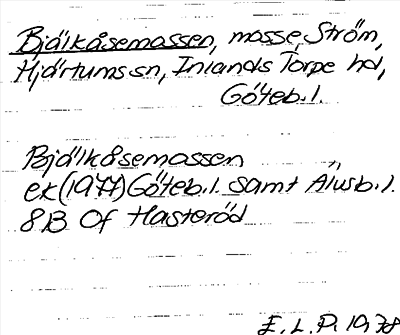 Bjälkåsemassen, mosse, Ström,
Hjärtums sn, Inlands Torpe hd,
Göteb. l.
Bjälkåsemossen
ek (1974) Göteb. l. samt Älvsb. l.
8B 0f Hasteröd
E. L. P. 1978